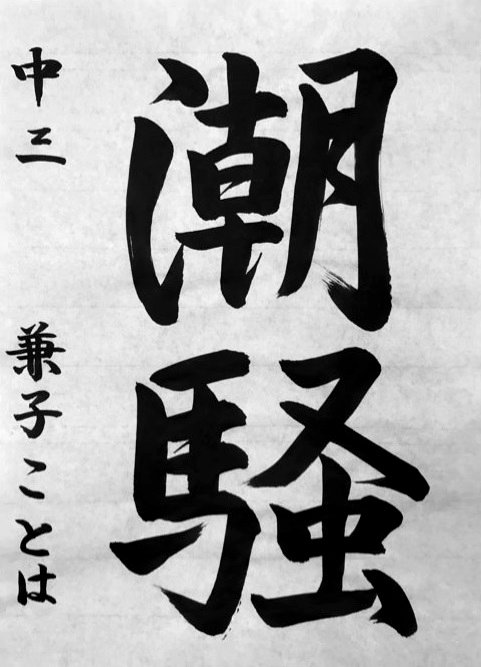 潮騒
中三 兼子ことは